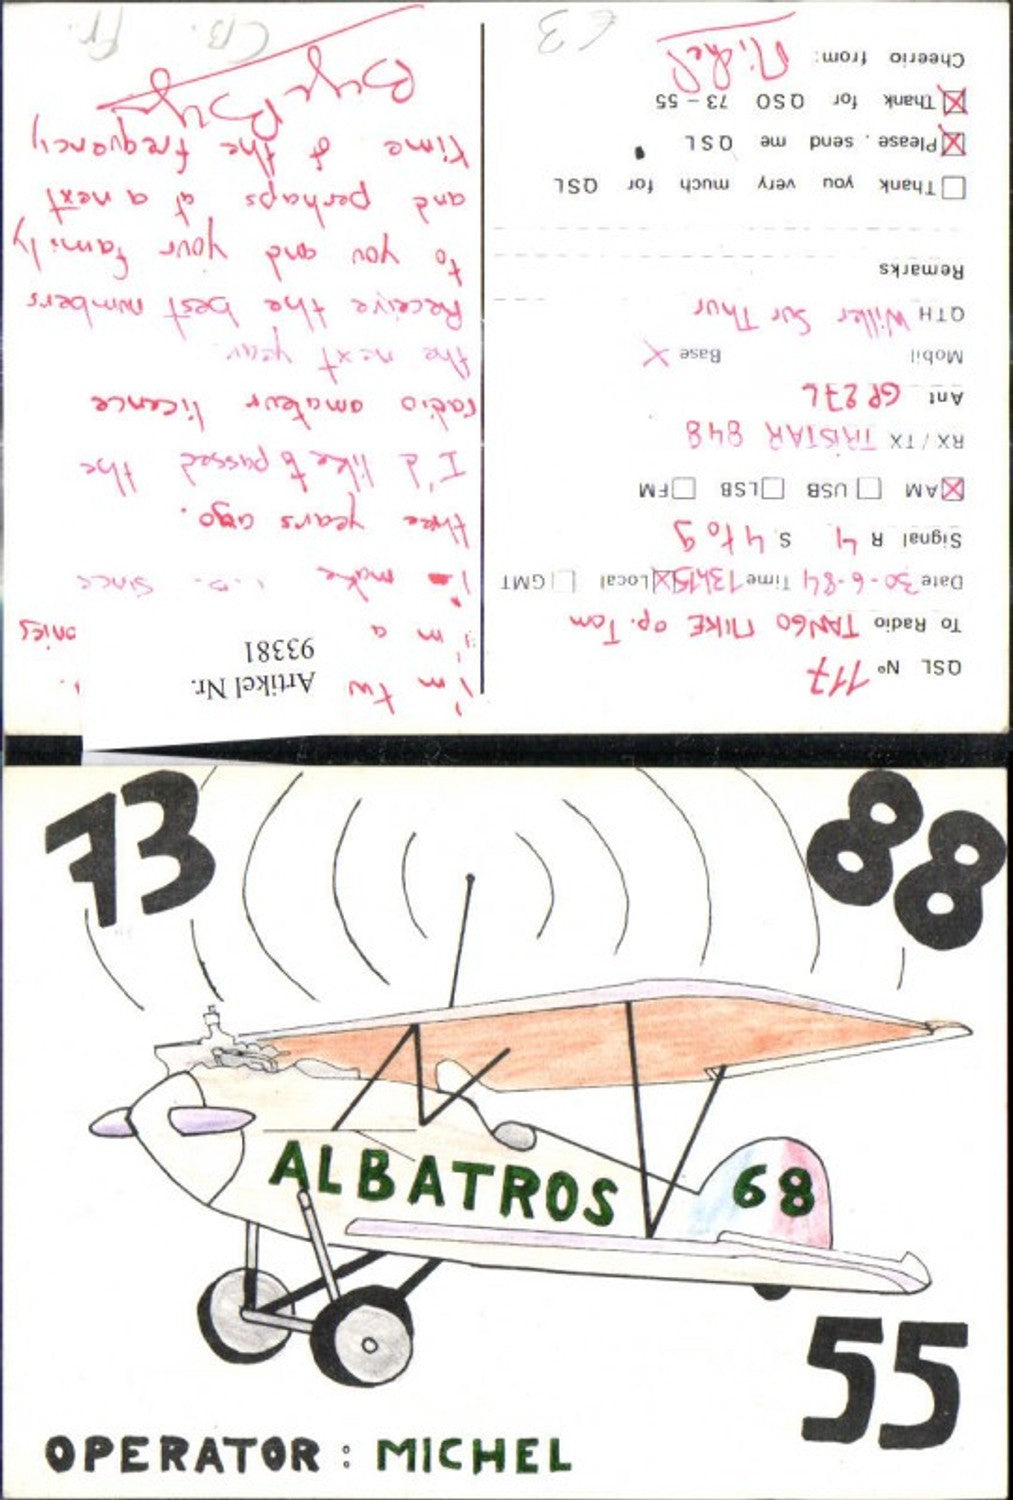 QSL Nº 117
To Radio TANGO MIKE op. Tom
Date 30-6-84 Time 13h15 Local GMT
Signal R 4 S 4 to 9
AM USB LSB FM
RX / TX TRISTAR 848
Ant GP 27 L
Mobil Base X
QTH Willer Sur Thur
Remarks
Thank you very much for QSL
Please, send me QSL
Thank for QSO 73 - 55
Cheerio from: Michel
i'm tw
Artikel Nr.
93381
i'm a
i make since
three years ago.
I'd like to passed the
radio amateur licence
the next year.
Receive the best numbers
to you and your family
and perhaps at a next
time of the frequency
Bye Bye
€3
CB.
Fr.
73
88
ALBATROS
68
55
OPERATOR : MICHEL